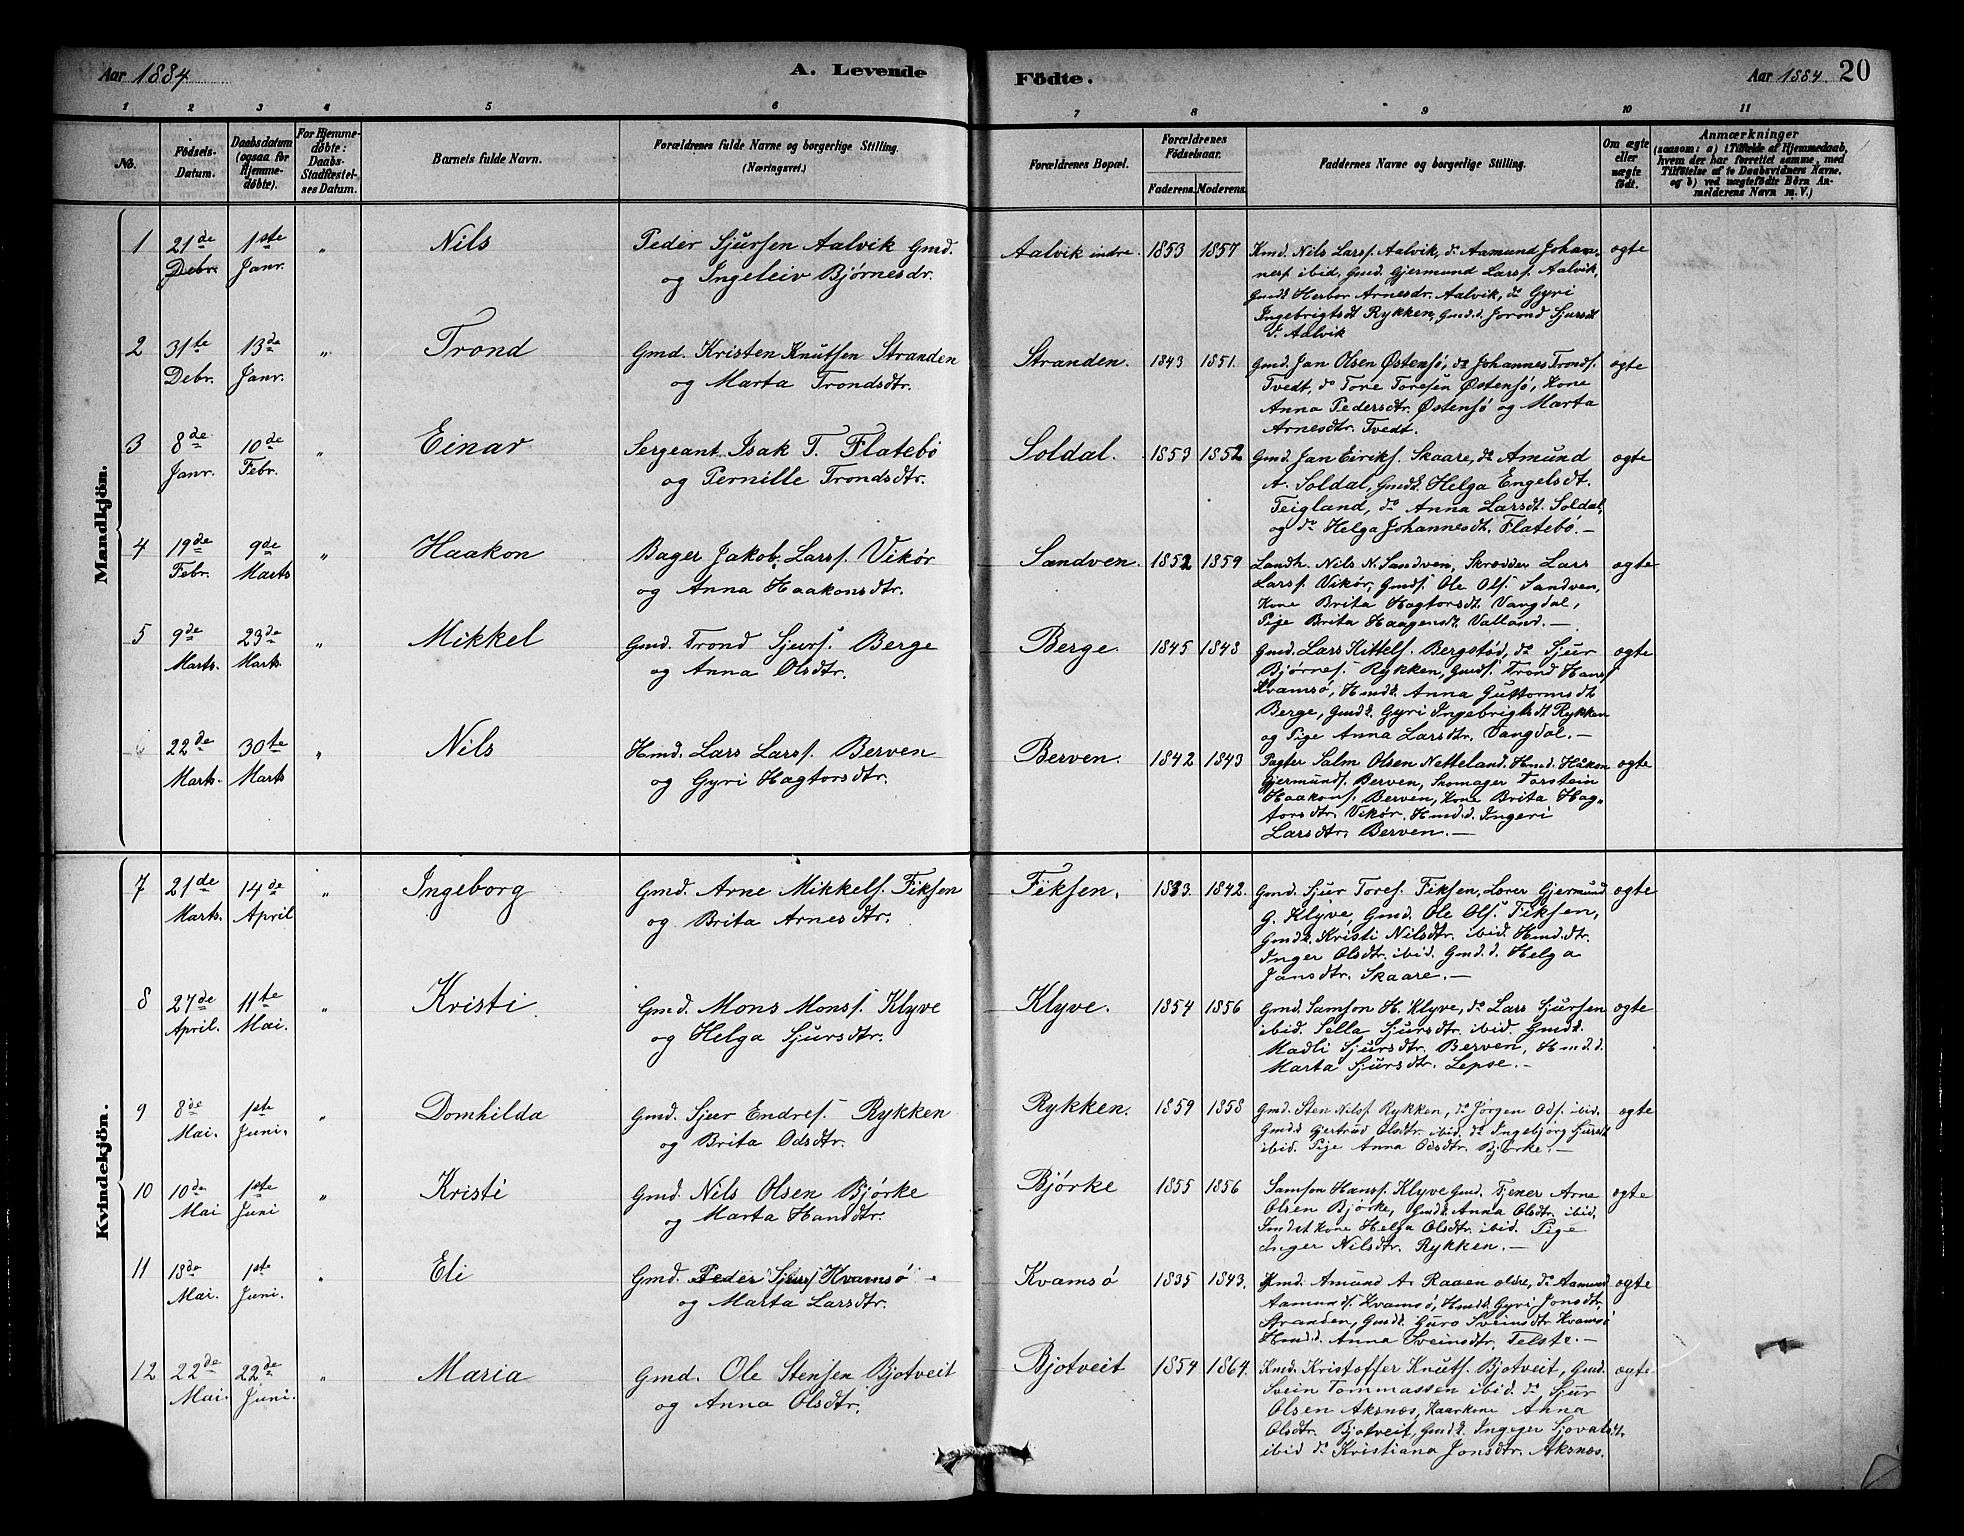 Aar 1884
A. Levende
Födte.
Aar 1884
20
1 2 3 4 5 6 7 8 9 10 11
No.
Födsels-
Datum.
Daabsdatum
(ogsaa for
Hjemme-
döbte).
For Hjemme-
döbte:
Daabs-
Stadfæstel-
ses Datum.
Barnets fulde Navn.
Forældrenes fulde Navne og borgerlige Stilling.
(Næringsvei.)
Forældrenes Bopæl.
Forældrenes
Födselsaar.
Faderens. Moderens.
Faddernes Navne og borgerlige Stilling.
Om ægte
eller
uægte
födt.
Anmærkninger
(saasom: a) i Tilfælde af Hjemmedaab,
hvem der har forrettet samme, med
Tilföielse af to Daabsvidners Navne,
og b) ved uægtefödte Börn An-
melderens Navn m. V.)
Mandkjön.
1 21de Debr. 1ste Janr. " Nils
Peder Sjursen Aalvik Gmd.
og Ingeleiv Bjørnesdr.
Aalvik indre. 1853 1857
Kmd. Nils Larss. Aalvik, do Aamund Johan-
ness ibid, Gmd. Gjermund Larss. Aalvik,
Gmdk Herbor Arnesdr. Aalvik, do Gyri
Ingebrigtsdt Rykken, Gmd.d. Jorond Sjursdt
I. Aalvik
ægte
2 31te Debr. 13de Janr. " Trond
Gmd. Kristen Knutsen Stranden
og Marta Trondsdtr.
Stranden. 1843 1851.
Gmd. Jan Olsen Østensö, do Johannes Tronds.
Tvedt, do Tore Toresen Østensö, Kone
Anna Pedersdtr. Østensö og Marta
Arnesdtr. Tvedt.
ægte
3 8de Janr. 10de Febr. " Einar
Sergeant Isak T. Flatebö
og Pernille Trondsdtr.
Soldal. 1853 1852
Gmd. Jan Eiriks. Skaare, do Amund
A. Soldal, Gmdk. Helga Engelsdt.
Teigland, do Anna Larsdt. Soldal,
og do Helga Johannesdt. Flatebö.—
ægte
4 19de Febr. 9de Marts " Haakon
Bager Jakob Larss. Vikör
og Anna Haakonsdtr.
Sandven. 1852 1859
Landh. Nils N. Sandven, Skrædder Lars
Larss. Vikör, Gmds. Ole Ols. Sandven,
Kone Brita Hagtorsdt. Vangdal,
Pige Brita Haagensdt. Valland.—
ægte
5 9de Marts. 23de Marts. " Mikkel
Gmd. Trond Sjurs. Berge
og Anna Olsdtr.
Berge. 1845 1843
Gmd. Lars Kittels. Bergstöd, do Sjur
Bjørnes. Rykken, Gmds. Trond Hanss
Kvamsö, Hmdk. Anna Guttormsdt
Berge, Gmdk. Gyri Ingebrigtsdt Rykken
og Pige Anna Larsdtr. Vangdal.—
ægte
6 22de Marts. 30te Marts " Nils
Hmd. Lars Larss. Berven
og Gyri Hagtorsdtr.
Berven. 1842 1843
Pagter Salm Olsen Netteland. Hmd. Håkon
Gjermunds. Berven, Skomager Torstein
Haakons. Berven, Kone Brita Hag-
torsdtr. Vikör. Hmd.d. Ingeri
Larsdtr. Berven.—
ægte
Kvindekjön.
7 21de Marts. 14de April " Ingeborg
Gmd. Arne Mikkels. Fiksen
og Brita Arnesdtr.
Fiksen. 1833. 1842.
Gmd. Sjur Tores. Fiksen, Lærer Gjermund
G. Klyve, Gmd. Ole Ols. Fiksen,
Gmdk. Kristi Nilsdtr. ibid. Hmd.dtr.
Inger Olsdtr. ibid. Gmd.d. Helga
Jansdtr. Skaare.—
ægte
8 27de April. 11te Mai. " Kristi
Gmd. Mons Monss. Klyve
og Helga Sjursdtr.
Klyve. 1854 1856
Gmd. Samson H. Klyve, do Lars Sjursen
ibid. Sella Sjursdtr. ibid. Gmdk.
Madli Sjursdtr. Berven, Hmd.d.
Marta Sjursdtr. Lepse.—
ægte
9 8de Mai. 1ste Juni. " Domhilda
Gmd. Sjur Endres. Rykken
og Brita Odsdtr.
Rykken. 1859 1858
Gmd. Sten Nilss Rykken, do Jørgen Ods. ibid.
Gmdk Gjertrud Olsdtr. ibid. do Ingebjørg Sjursdt
ibid. Pige Anna Odsdtr. Bjørke.—
ægte
10 10de Mai 1ste Juni " Kristi
Gmd. Nils Olsen Bjørke
og Marta Hansdtr.
Bjørke 1855 1856
Samson Hanss. Klyve Gmd. Tjener Arne
Olsen Bjørke, Gmdk. Anna Olsdtr. ibid.
Indstkone Helga Olsdtr. ibid. Pige
Inger Nilsdtr. Rykken.—
ægte
11 18de Mai. 1ste Juni. " Eli
Gmd. Peder Sjurs Kvamsö
og Marta Larsdtr.
Kvamsö 1835 1843.
Kmd. Amund A. Raaen ældre, do Aamund
Aamunds. Kvamsö, Hmdk. Gyri Jonsdtr.
Stranden, Gmdk. Guro Sveinsdtr Kvamsö
Hmd.d. Anna Sveinsdtr. Telste.—
ægte
12 22de Mai. 22de Juni. " Maria
Gmd. Ole Stensen Bjotveit
og Anna Olsdtr.
Bjotveit 1854 1864.
Kmd. Kristoffer Knuts. Bjotveit, Gmd.
Svein Tommassen ibid. do Sjur
Olsen Aksnæs, Kaarkone Anna
Olsdtr. Bjotveit, Gmdk. Ingeger Sjovatsdt.
ibid do Kristiana Jonsdtr. Aksnæs.
ægte.